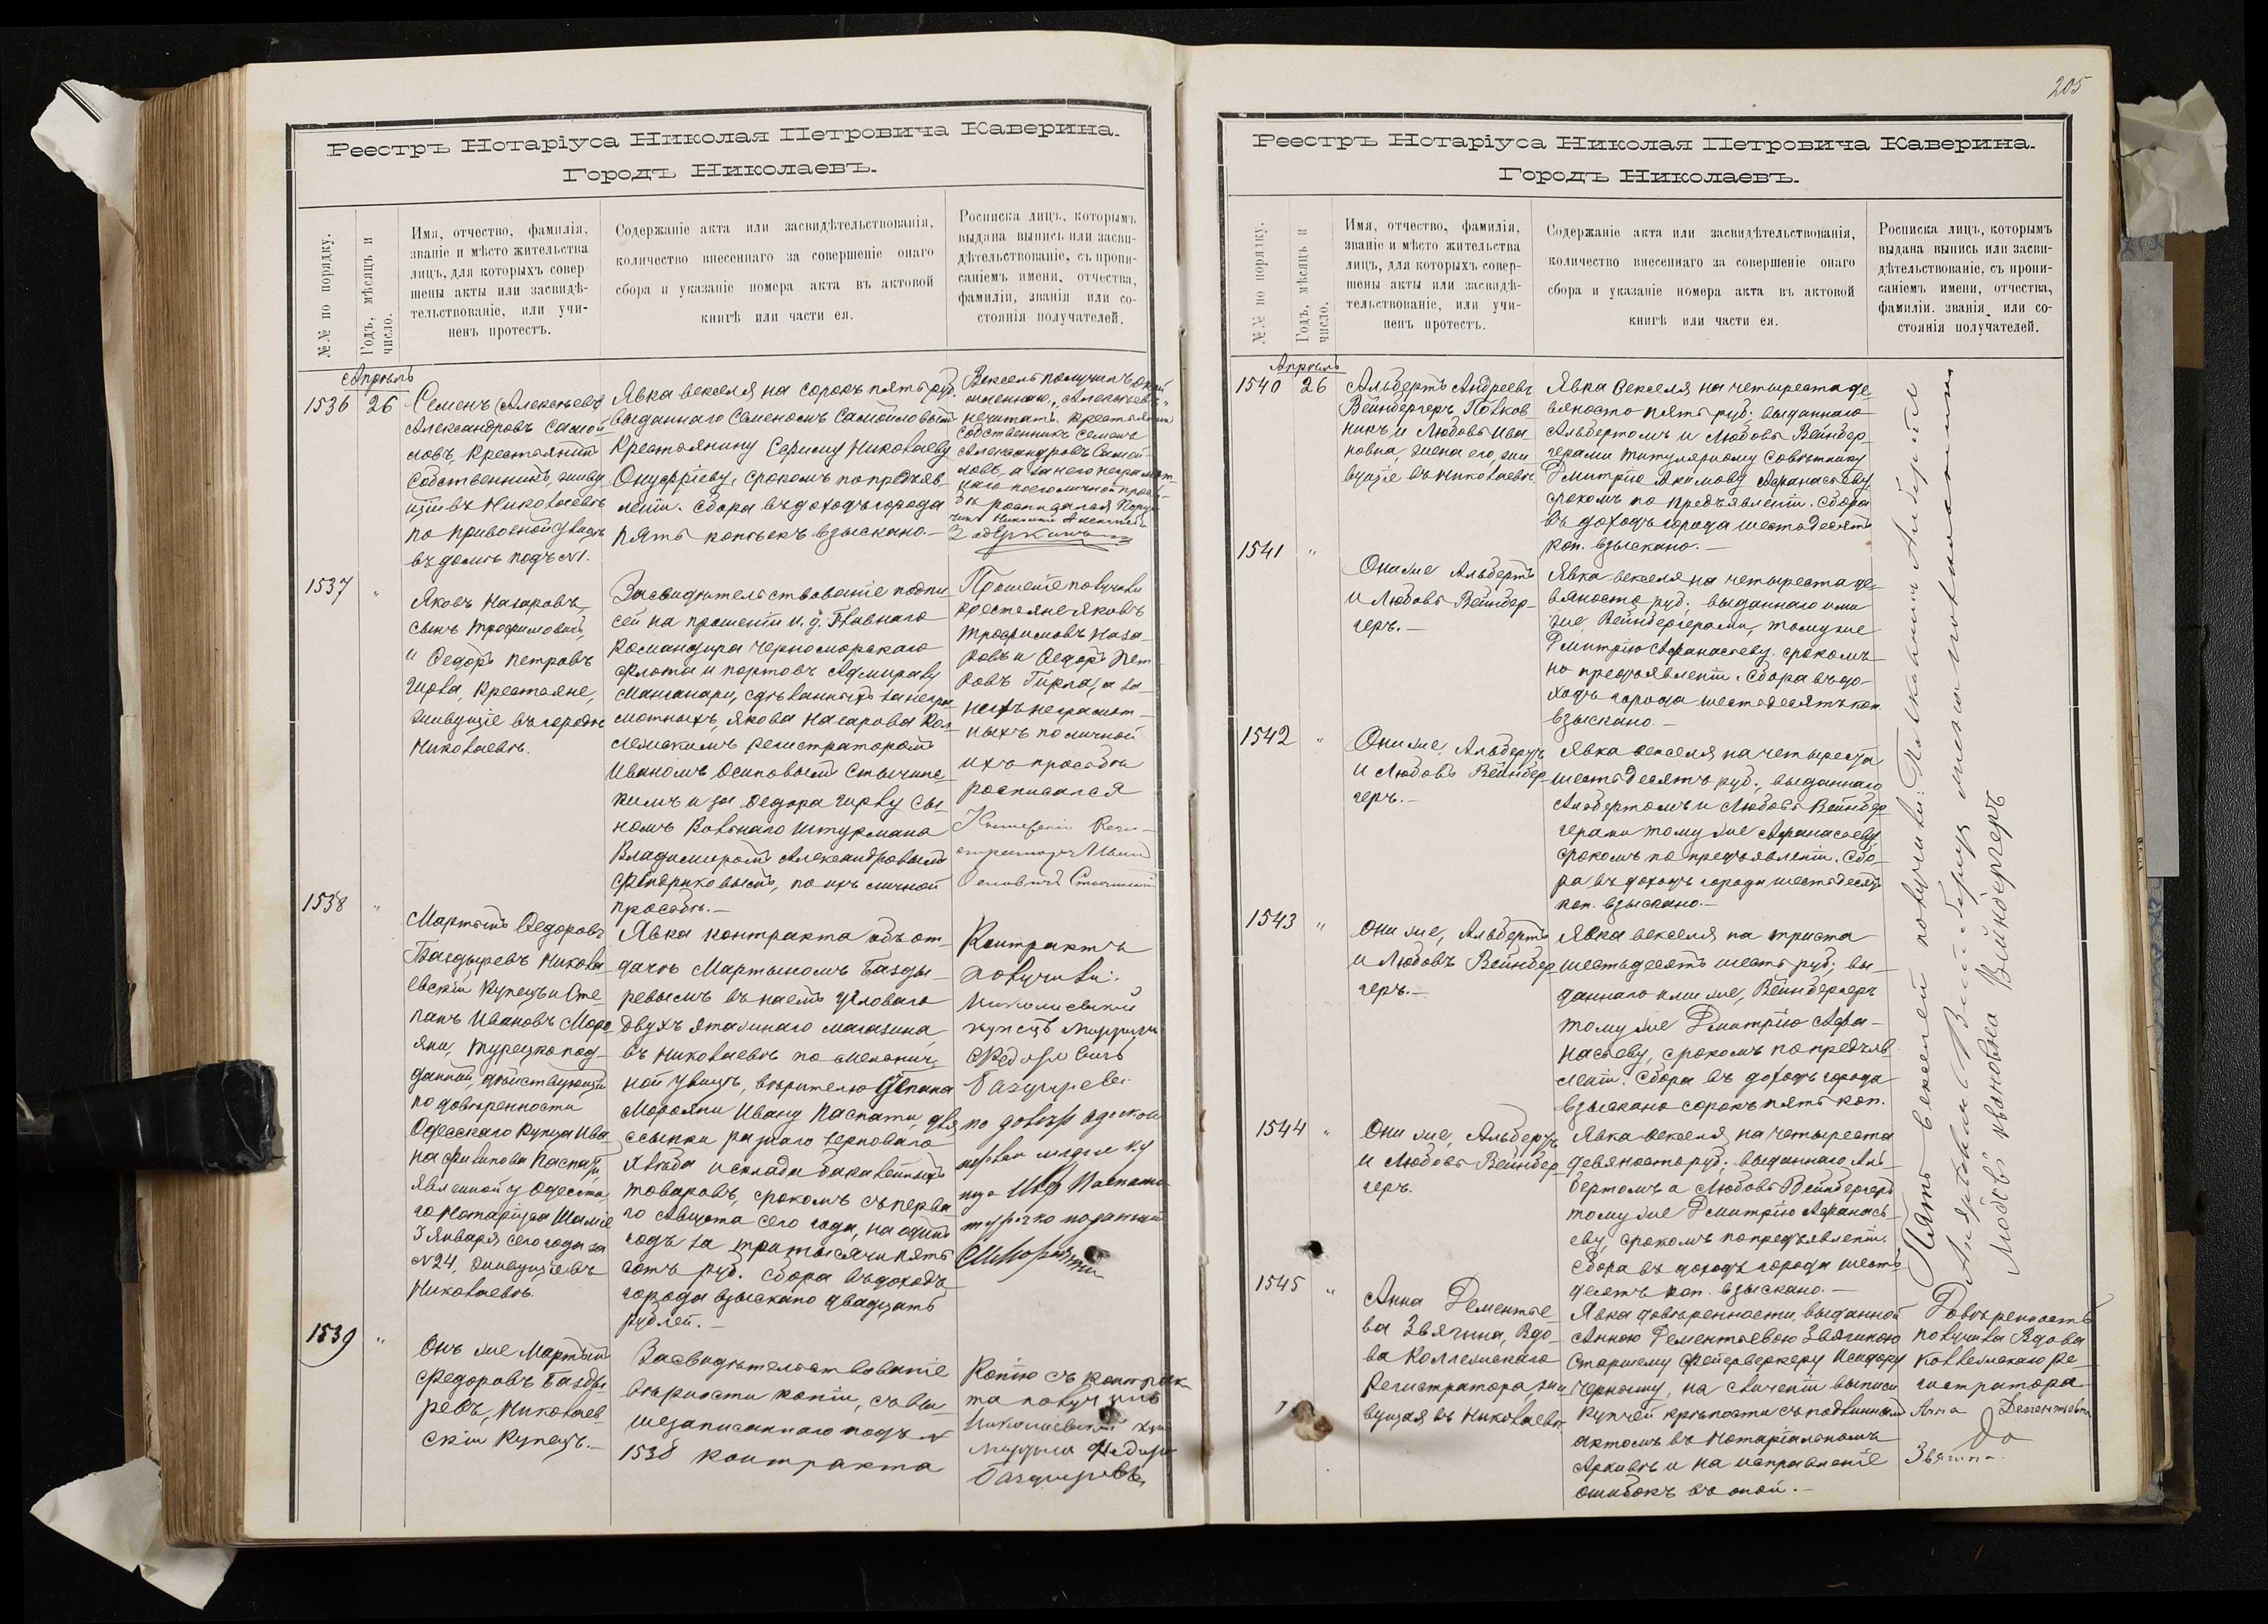 Реестръ Нотаріуса Николая Петровича Каверина.
Городъ Николаевъ.
№№ по порядку.
Годъ, мѣсяцъ и
число.
Имя, отчество, фамилія,
званіе и мѣсто жительства
лицъ, для которыхъ совер-
шены акты или засвидѣ-
тельствованіе, или учи-
ненъ протестъ.
Содержаніе акта или засвидѣтельствованія,
количество внесеннаго за совершеніе онаго
сбора и указаніе номера акта въ актовой
книгѣ или части ея.
Росписка лицъ, которымъ
выдана выпись или засви-
дѣтельствованіе, съ пропи-
саніемъ имени, отчества,
фамиліи, званія или со-
стоянія получателей.
Апрѣль
1536 26
Семенъ (Алексѣевъ)
Александровъ Самой
ловъ, Крестьянинъ
Собственникъ, живу
щій въ Николаевѣ
по Привозной улицѣ
въ домѣ подъ №1.
Явка векселя на сорокъ пять руб.
выданнаго Семеномъ Самойловымъ
Крестьянину Ефиму Николаеву
Онуфріеву, срокомъ по предъяв-
леніи. Сбора въ доходъ города
пять копѣекъ взыскано.-
Вексель получилъ
"Алексѣевъ"
нечитать. Крестьянинъ
Собственникъ Семенъ
Александровъ Самой-
ловъ, а за него неграмот-
наго по его личной прось-
бѣ росписался
1537 "
Яковъ Назаровъ,
сынъ Трофимовъ,
и Федоръ Петровъ
Гирла, Крестьяне,
живущіе въ городѣ
Николаевѣ.
Засвидѣтельствованіе подпи
сей на прошеніи и. д. Главнаго
Командира Черноморскаго
флота и портовъ Адмиралу
Манганари, сдѣланныхъ за негра
мотныхъ, Якова Назарова Кол-
лежскимъ регистраторомъ
Иваномъ Осиповымъ Стычинс-
кимъ и за Федора Гирлу сы-
номъ Вольнаго Штурмана
Владимиромъ Александровымъ
Фендриковымъ, по ихъ личной
просьбѣ.-
Прошеніе получили
крестьяне Яковъ
Трофимовъ Наза-
ровъ и Федоръ Пет-
ровъ Гирла, а за
нихъ неграмот-
ныхъ по личной
ихъ просьбѣ
росписался
1538 "
Мартынъ Федоровъ
Баздыревъ Никола
евскій Купецъ и Сте-
панъ Ивановъ Моро-
яни, Турецко под-
данный, дѣйствующій
по довѣренности
Одесскаго Купца Ива
на Филипова Паспати,
явленной у Одесска
го Нотаріуса Шамье
3 Января сего года за
№24, живущіе въ
Николаевѣ.
Явка контракта объ от-
дачѣ Мартыномъ Базды-
ревымъ въ наемъ угловаго
двухъ этажнаго магазина,
въ Николаевѣ по
ной улицѣ, вѣрителю Степана
Морояни Ивану Паспати, для
ссыпки разнаго зерноваго
хлѣба и склада бакалейныхъ
товаровъ, срокомъ съ перва
го Августа сего года, на одинъ
годъ за три тысячи пять
сотъ руб. Сбора въ доходъ
города взыскано двадцать
рублей.-
Контрактъ
получили:
Николаевскій
купецъ Мартынъ
Федоровъ
Баздыревъ
1539 "
Онъ же Мартынъ
Федоровъ Базды
ревъ, Николаев-
скій Купецъ.-
Засвидѣтельствованіе
вѣрности копіи, съ вы-
шезаписаннаго подъ №
1538 контракта
Копію съ контрак-
та получилъ
Николаевскій
Мартынъ Федоровъ
Баздыревъ
205
Реестръ Нотаріуса Николая Петровича Каверина.
Городъ Николаевъ.
№№ по порядку.
Годъ, мѣсяцъ и
число.
Имя, отчество, фамилія,
званіе и мѣсто жительства
лицъ, для которыхъ совер-
шены акты или засвидѣ-
тельствованіе, или учи-
ненъ протестъ.
Содержаніе акта или засвидѣтельствованія,
количество внесеннаго за совершеніе онаго
сбора и указаніе номера акта въ актовой
книгѣ или части ея.
Росписка лицъ, которымъ
выдана выпись или засви-
дѣтельствованіе, съ пропи-
саніемъ имени, отчества,
фамиліи, званія или со-
стоянія получателей.
Апрѣль
1540 26
Альбертъ Андреевъ
Вейнбергеръ Полков
никъ и Любовь Ива
новна, жена его, жи
вущіе въ Николаевѣ
Явка векселя на четыреста де-
вяносто пять руб; выданнаго
Альбертомъ и Любовь Вейнбер-
герами титулярному Совѣтнику
Дмитрію Акимову Афанасьеву,
срокомъ по предъявленіи. Сбора
въ доходъ города шестьдесятъ
коп. взыскано.-
1541 "
Они же Альбертъ
и Любовь Вейнбер-
геръ.-
Явка векселя на четыреста де-
вяносто руб; выданнаго ими
же, Вейнбергерами, тому же
Дмитрію Афанасьеву срокомъ
по предъявленіи. Сбора въ до-
ходъ города шестьдесятъ коп
взыскано.-
1542 "
Они же, Альбертъ
и Любовь Вейнбер-
геръ.-
Явка векселя на четыреста
шестьдесятъ руб; выданнаго
Альбертомъ и Любовь Вейнбер
герами тому же Афанасьеву
срокомъ по предъявленіи. Сбо-
ра въ доходъ города шестьдесятъ
коп. взыскано.-
1543 "
Они же, Альбертъ
и Любовь Вейнбер
геръ.-
Явка векселя на триста
шестьдесятъ шесть руб; вы-
даннаго ими же, Вейнбергеръ
тому же Дмитрію Афа-
насьеву, срокомъ по предъяв
леніи. Сбора въ доходъ города
взыскано сорокъ пять коп.
1544 "
Они же, Альбертъ
и Любовь Вейнбер
геръ.
Явка векселя, на четыреста
девяносто руб; выданнаго Аль-
бертомъ и Любовь Вейнбергеръ
тому же Дмитрію Афанась-
еву, срокомъ по предъявленіи.
Сбора въ доходъ города шесть
десятъ коп. взыскано.-
Пять векселей получили: Полковникъ Альбертъ
Андреевичъ Вейнбергеръ жена полковника
Любовь Ивановна Вейнбергеръ
1545 "
Анна Дементье
ва Звягина, Вдо-
ва Коллежскаго
Регистратора, жи
вущая въ Николаевѣ
Явка довѣренности, выданной
Анною Дементьевою Звягиною
Старшему Фейерверкеру Исидору
Черному, на сличеніи выписи
купчей крѣпости съ подлиннымъ
актомъ въ Нотаріальномъ
Архивѣ и на исправленіе
ошибокъ въ оной.-
Довѣренность
получила Вдова
Коллежскаго Ре-
гистратора
Анна Дементьева
Звягина.